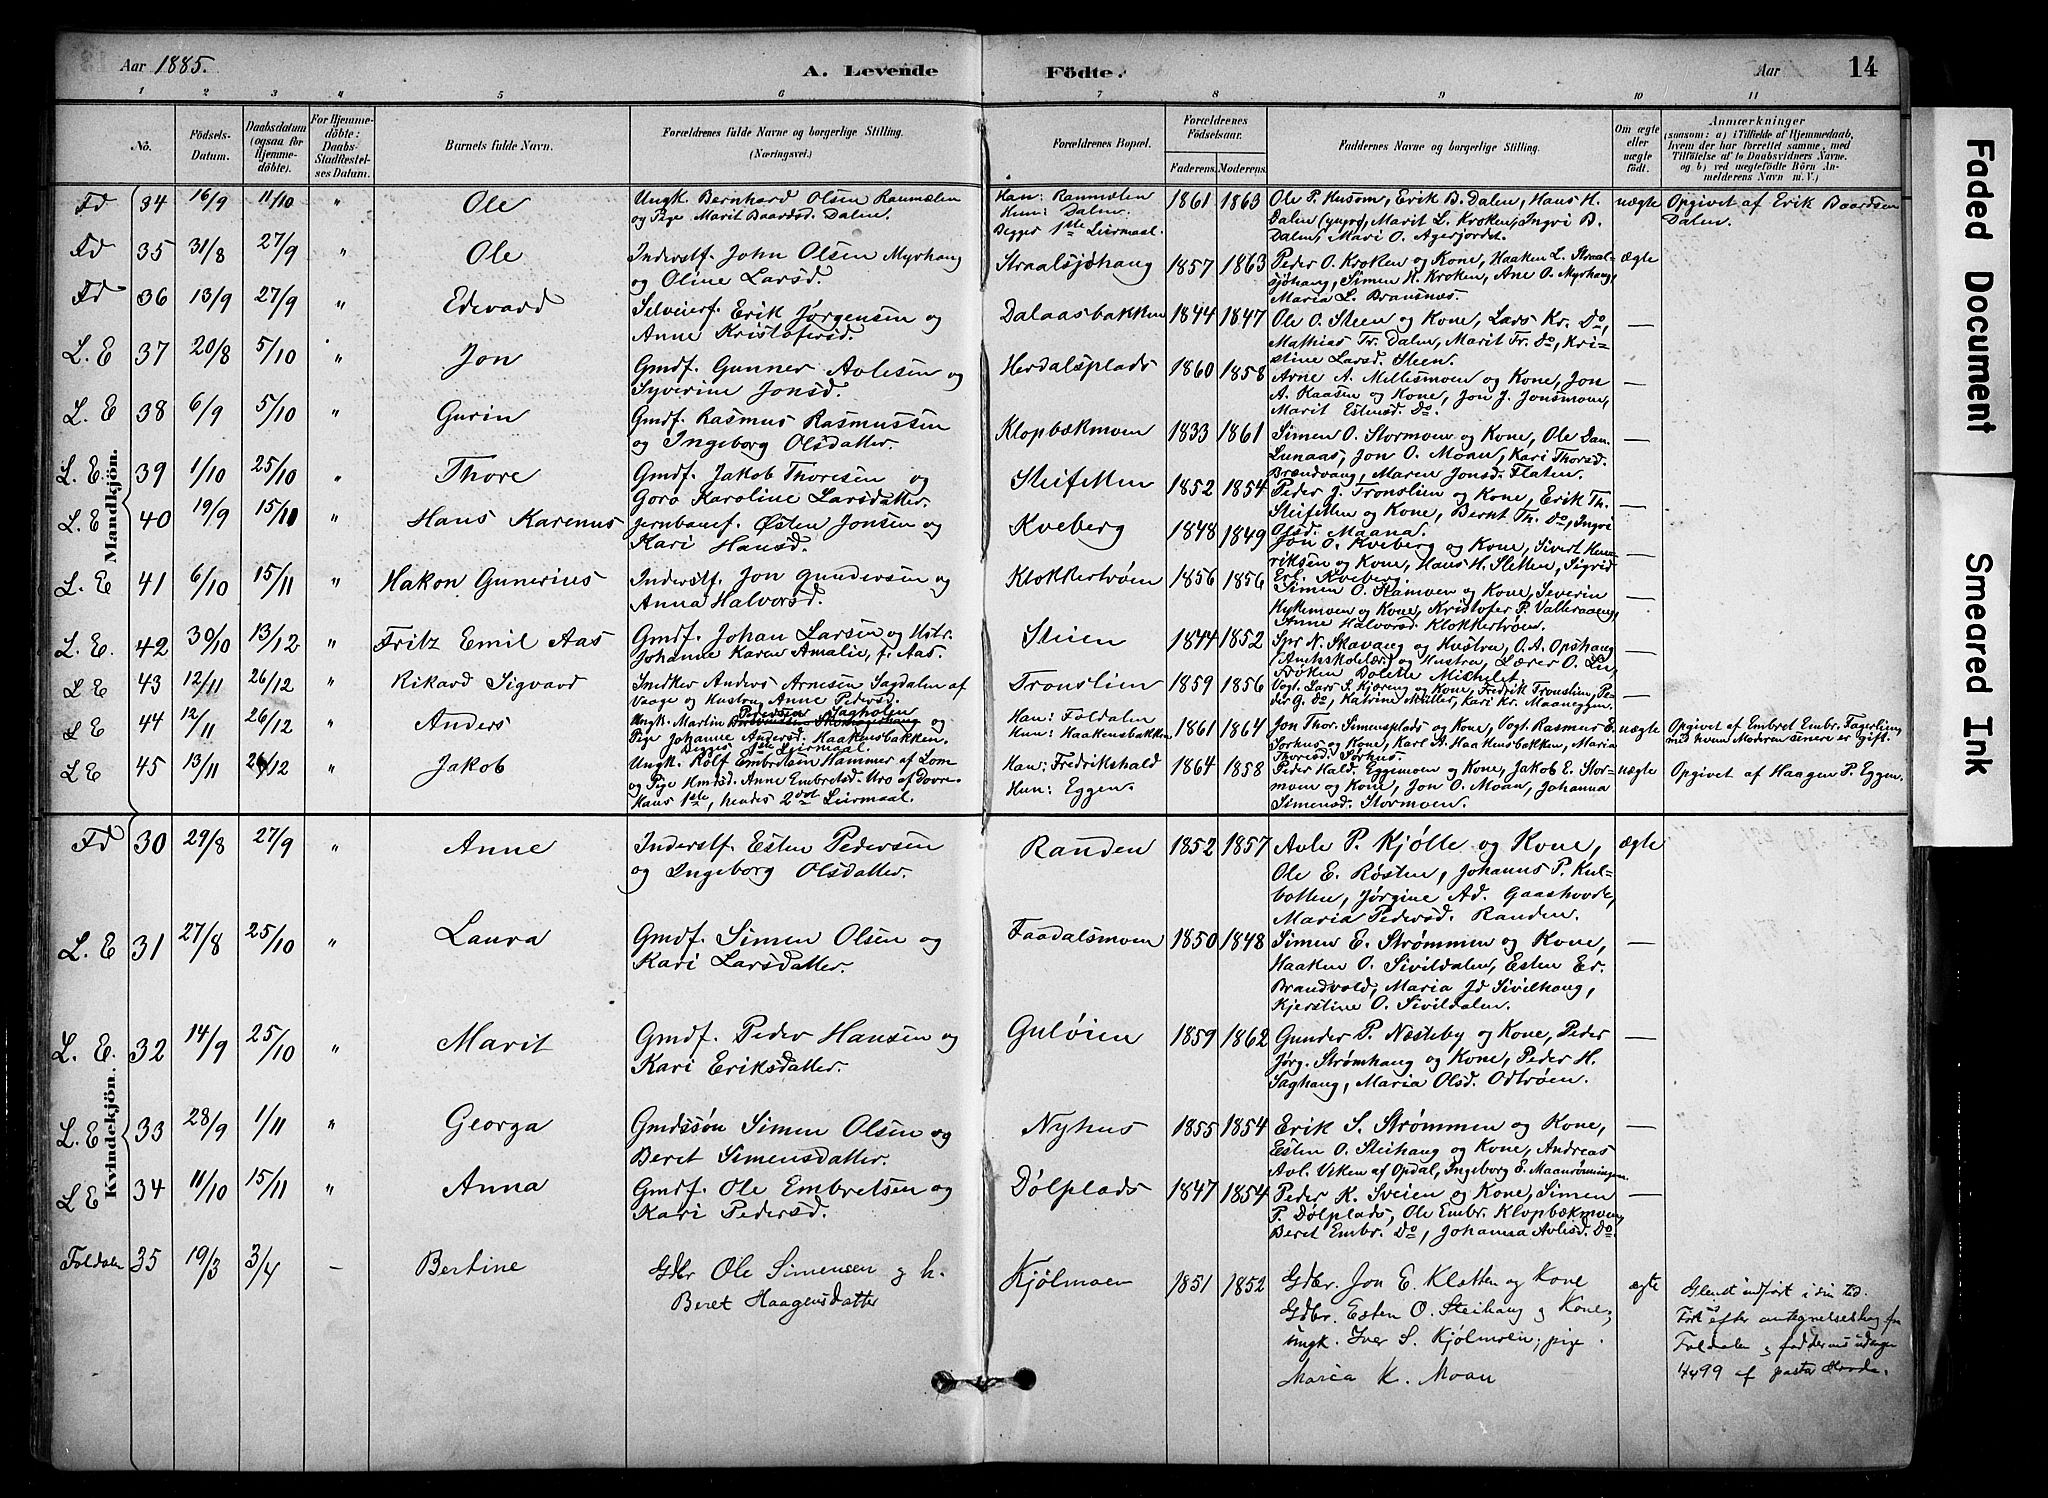 Aar 1885.
A. Levende Födte.
Aar 14
1 2 3 4 5 6 7 8 9 10 11
No.
Födsels-
Datum.
Daabsdatum
(ogsaa for
Hjemme-
döbte).
For Hjemme-
döbte:
Daabs-
Stadfæstel-
ses Datum.
Barnets fulde Navn.
Forældrenes fulde Navne og borgerlige Stilling.
(Næringsvei.)
Forældrenes Bopæl.
Forældrenes
Födselsaar.
Faderens. Moderens.
Faddernes Navne og borgerlige Stilling.
Om ægte
eller
uægte
födt.
Anmærkninger
(saasom: a) i Tilfælde af Hjemmedaab,
hvem der har forrettet samme, med
Tilföielse af to Daabsvidners Navne.
og b) ved uægtefödte Börn An-
melderens Navn m. V.)
Mandkjön.
Fd 34 16/9 11/10 " Ole
Ungk. Bernhard Olsen Ranmælen
og Pige Marit Baardsd. Dalen.
Han: Ranmælen
Hun: Dalen.
Begges 1ste Leirmaal.
1861 1863
Ole P. Husom, Erik B. Dalen, Hans H.
Dalen (yngre), Marit L. Kroken, Ingri B.
Dalen, Mari O. Agerjordet.
uægte
Opgivet af Erik Baardsen
Dalen.
Fd 35 31/8 27/9 " Ole
Inderstf. John Olsen Myrhaug
og Oline Larsd.
Straalsjøhaug 1857 1863
Peder O. Kroken og Kone, Haaken L. Straal-
sjöhaug, Simen H. Kroken, Ane O. Myrhaug,
Maria L. Bransnæs.
ægte
Fd 36 13/9 27/9 " Edevard
Selveierf. Erik Jørgensen og
Anne Kristofersd.
Dalaasbakken 1844 1847
Ole O. Steen og Kone, Lars Kr. Do,
Mathias Tr. Dalen, Marit Tr. Do, Kri-
stine Larsd. Steen.
—
L. E 37 20/8 5/10 " Jon
Gmdf. Gunner Avlesen og
Syverine Jonsd.
Herdalsplads 1860 1858
Arne A. Millesmoen og Kone, Jon
A. Kaasen og Kone, Jon J. Jonsmoen,
Marit Estensd. Do.
—
L. E 38 6/9 5/10 " Gurin
Gmdf. Rasmus Rasmussen
og Ingeborg Olsdatter.
Klopbækmoen 1833 1861
Simen O. Stormoen og Kone, Ole Dan-
Lunaas, Jon O. Moan, Kari Thorsd.
Brændvang, Maren Jonsd. Flaten.
—
L. E. 39 1/10 25/10 " Thore
Gmdf. Jakob Thoresen og
Goro Karoline Larsdatter.
Steifetten 1852 1854
Peder J. Tronslien og Kone, Erik Th.
Steifetten og Kone, Bernt Th. Do, Ingri
Olsd. Maana.
—
L. E 40 19/9 15/11 " Hans Karenus
Jernbanef. Østen Jonsen og
Kari Hansd.
Kveberg 1848 1849
Jon O. Kveberg og Kone, Sivert Hen-
riksen og Kone, Hans H. Sletten, Sigrid
Erl. Kveberg.
—
L. E 41 6/10 15/11 " Hakon Gunerius
Inderstf. Jon Gundersen og
Anna Halvorsd.
Klokkertrøen 1856 1856
Simen O. Kamoen og Kone, Severin
Kykemoen og Kone, Kristofer P. Valleraaeng,
Anne Halvorsd. Klokkertrøen.
—
L. E. 42 30/10 13/12 " Fritz Emil Aas
Gmdf. Johan Larsen og Hstr.
Johanne Karen Amalie, f. Aas.
Steien 1844 1852
Spr N. Skavang og Hustru, O. A. Opshaug
(Amtskolelær.) og Hustru, Lærer O. Lie,
Frøken Dolette Michelet.
—
L E 43 12/11 26/12 " Rikard Sigvard
Smedker Anders Arnesen Sagdalen af
Vaage og Hustru Anne Pedersd.
Tronslien 1859 1856
Vogt. Lars S. Kjæreng og Kone, Fredrik Tronslien, Pe-
der G. Do, Katrine Müller, Kari Kr. Maaneggen.
—
L E 44 12/11 26/12 " Anders
Pedersen Sagholen
Ungk. Martin og
Pige Johanne Andersd. Haakensbakken.
Begges 1ste Leirmaal.
Han: Foldalen
Hun: Haakensbakken
1861 1864
Jon Thor. Simensplads og Kone, Vogt. Rasmus E.
Sorhus og Kone, Karl H. Haakensbakken, Maria
Thoresd. Sorhus.
uægte
Opgivet af Embret Embr. Fagerlien,
med hvem Moderen senere er gift.
L E 45 13/11 26/12 " Jakob
Ungk. Rolf Embretsen Hammer af Lom
og Pige Hmdsd. Anne Embretsd. Uro af Dovre.
Hans 1ste, hendes 2det Leirmaal.
Han: Fredrikshald
Hun: Eggen.
1864 1858
Peder Hald. Eggemoen og Kone, Jakob E. Stor-
moen og Kone, Jon O. Moan, Johanna
Simensd. Stormoen.
uægte
Opgivet af Haagen P. Eggen.
Kvindekjön.
Fd 30 29/8 27/9 " Anne
Inderstf. Esten Pedersen
og Ingeborg Olsdatter.
Randen 1852 1857
Avle P. Kjølle og Kone,
Ole E. Røsten, Johannes P. Kul-
botten, Jørgine Ad. Gaashovde,
Maria Pedersd. Randen.
ægte
L. E 31 27/8 25/10 " Laura
Gmdf. Simen Olsen og
Kari Larsdatter.
Faadalsmoen 1850 1848
Simen E. Strømmen og Kone,
Haaken O. Sivildalen, Esten Er.
Brandvold, Maria Jd Sivilhaug,
Kjerstine O. Sivildalen.
—
L. E. 32 14/9 25/10 " Marit
Gmdf. Peder Hansen og
Kari Eriksdatter.
Guløien 1859 1862
Gunder P. Næsteby og Kone, Peder
Jørg. Strømhaug og Kone, Peder H.
Saghaug, Maria Olsd. Odtrøen.
—
L. E 33 28/9 1/11 " Georga
Gmdssøn Simen Olsen og
Beret Simensdatter.
Nyhus 1855 1854
Erik S. Strømmen og Kone,
Esten O. Steihaug og Kone, Andreas
Avl. Viken af Opdal, Ingeborg E. Maanrønningen.
—
L E 34 11/10 15/11 " Anna
Gmdf. Ole Embretsen og
Kari Pedersd.
Dølplads 1847 1854
Peder K. Sveien og Kone, Simen
P. Dølplads, Ole Embr. Klopbækmoen,
Beret Embr. Do, Johanna Avlesd. Do.
—
Foldalen 35 19/3 3/4 — Bertine
Gdbr Ole Simensen og h.
Beret Haagensdatter
Kjølmoen 1851 1852
Gdbr. Jon E. Kletten og Kone
Gdbr. Esten O. Steihaug og Kone,
ungk. Iver S. Kjølmoen; pige
Maria K. Moan
ægte
Glemt indført i sin tid.
efter antegnelsesbog fra
Foldalen og faddernes udsagn
4499 af
Faded Document
Smeared Ink